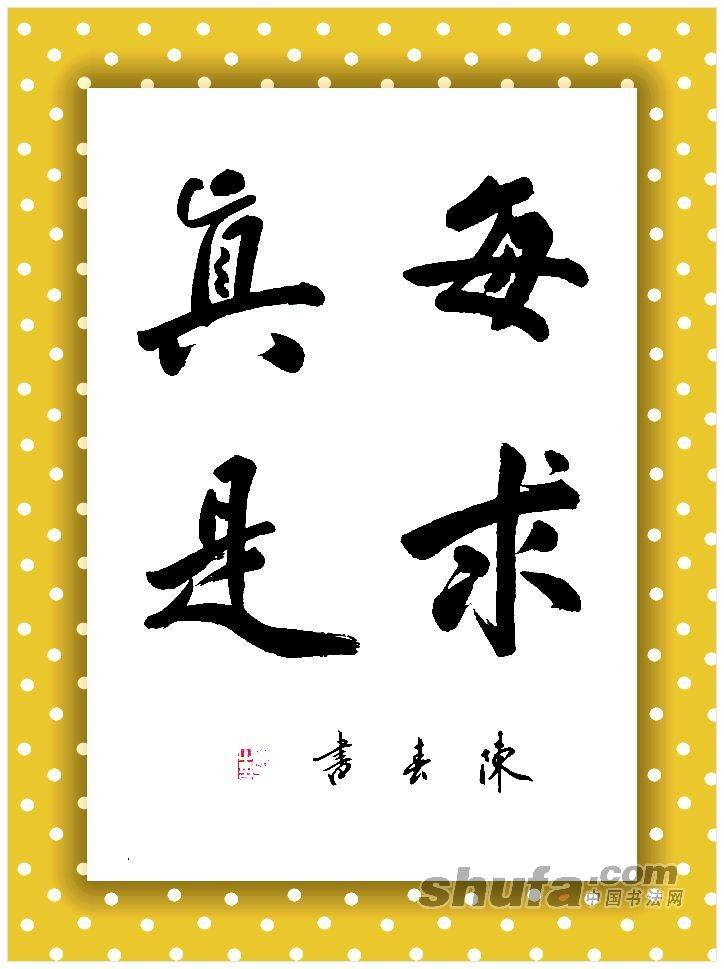 每求
眞是
陳春書
shufa.com
中国书法网